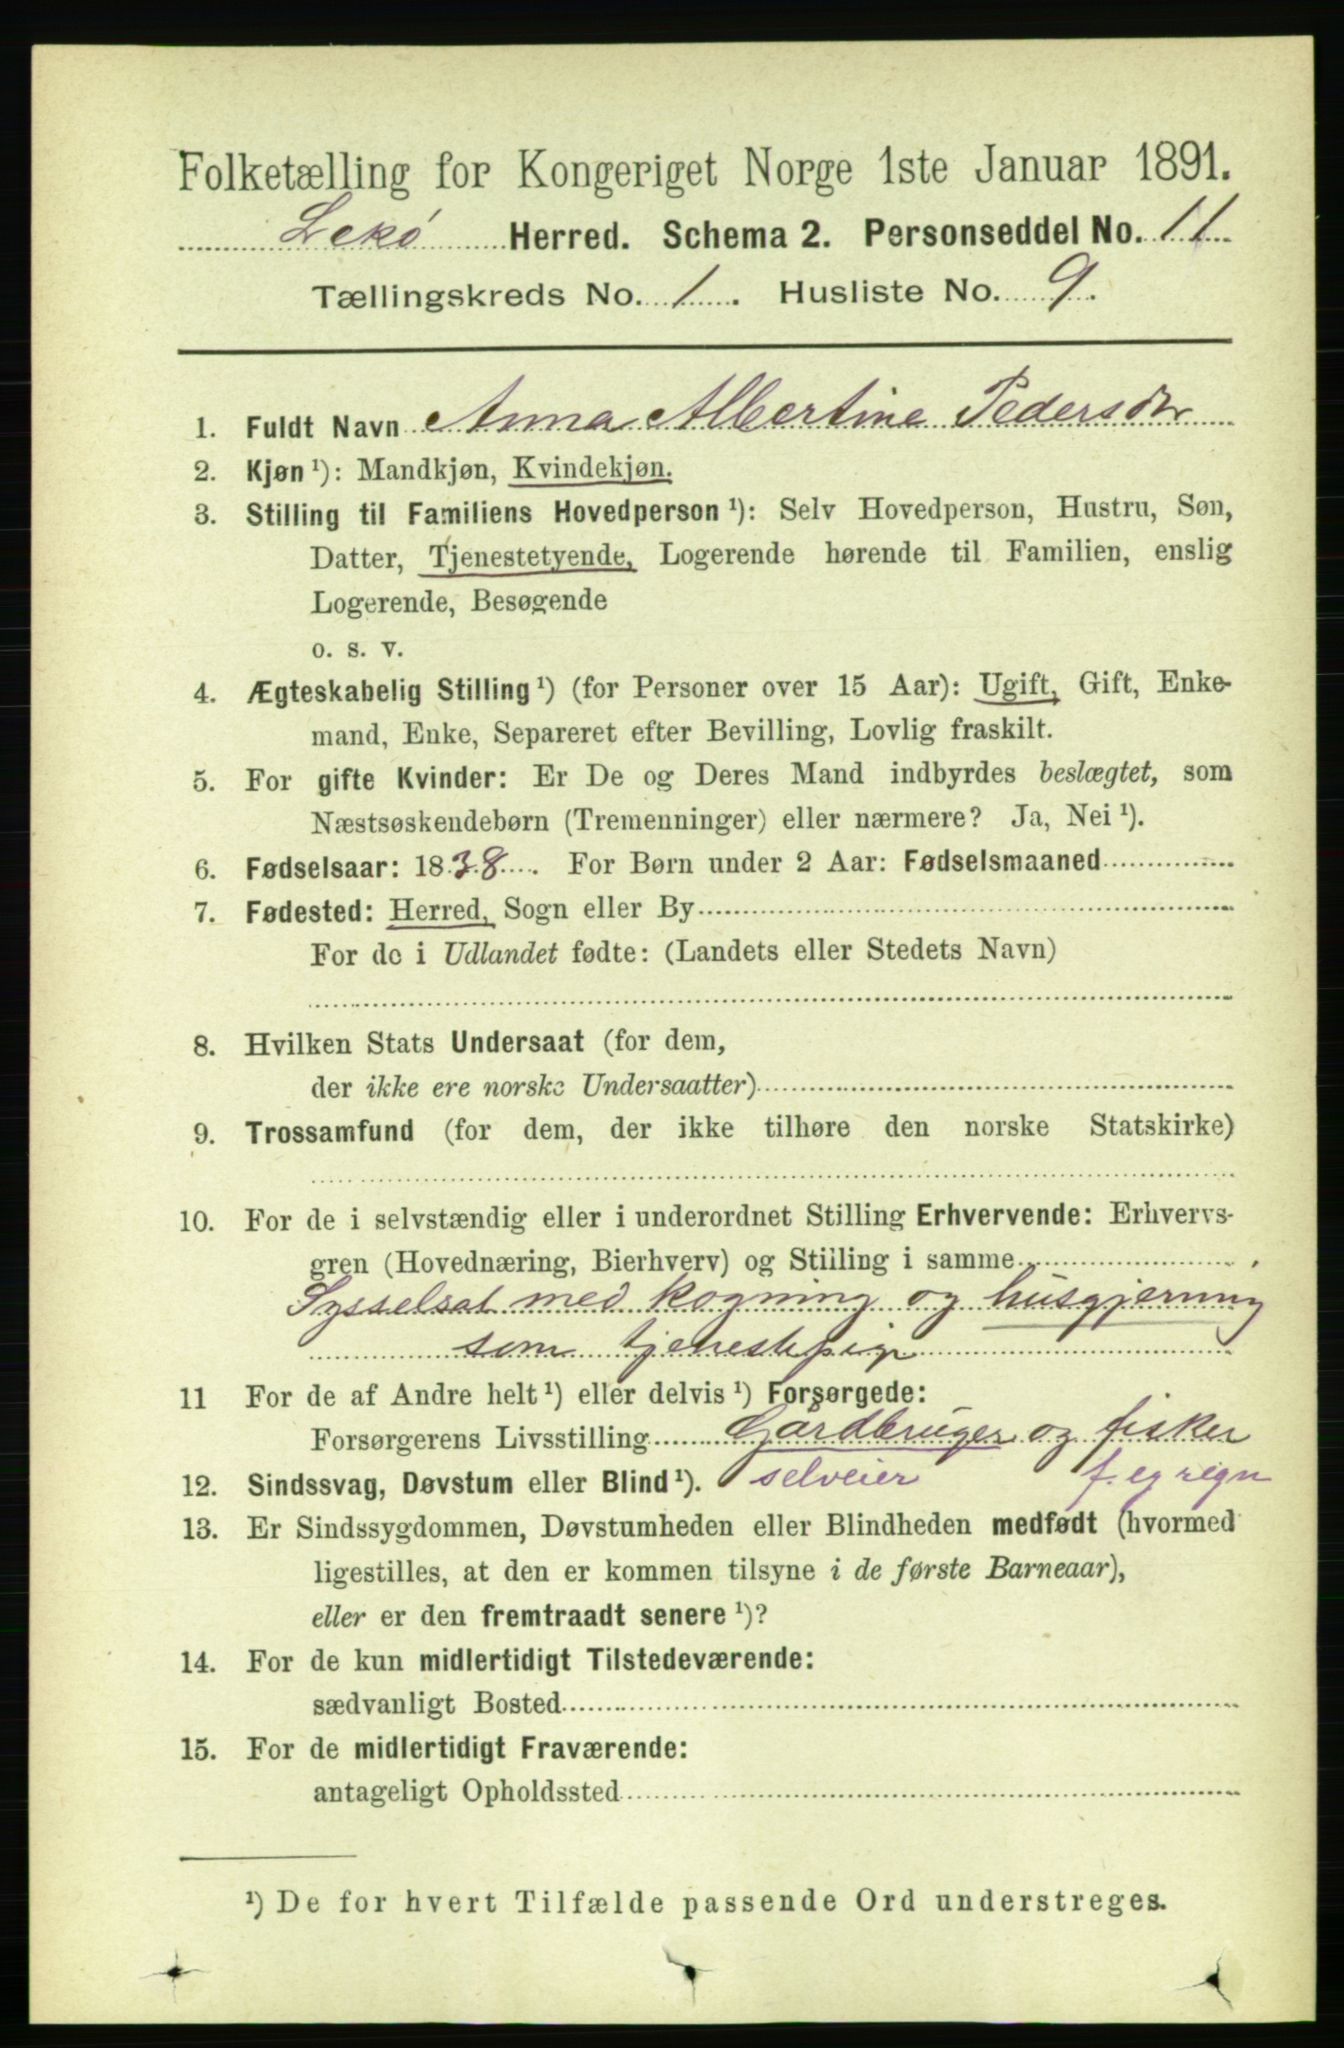 Folketælling for Kongeriget Norge 1ste Januar 1891.
Lekø Herred. Schema 2. Personseddel No. 11
Tællingskreds No. 1. Husliste No. 9.
1. Fuldt Navn Anna Albertine Pedersdtr
2. Kjøn ¹): Mandkjøn, Kvindekjøn.
3. Stilling til Familiens Hovedperson ¹): Selv Hovedperson, Hustru, Søn,
Datter, Tjenestetyende, Logerende hørende til Familien, enslig
Logerende, Besøgende
o. s. v.
4. Ægteskabelig Stilling ¹) (for Personer over 15 Aar): Ugift, Gift, Enke-
mand, Enke, Separeret efter Bevilling, Lovlig fraskilt.
5. For gifte Kvinder: Er De og Deres Mand indbyrdes beslægtet, som
Næstsøskendebørn (Tremenninger) eller nærmere? Ja, Nei ¹).
6. Fødselsaar: 1838. For Børn under 2 Aar: Fødselsmaaned
7. Fødested: Herred, Sogn eller By
For de i Udlandet fødte: (Landets eller Stedets Navn)
8. Hvilken Stats Undersaat (for dem,
der ikke ere norske Undersaatter)
9. Trossamfund (for dem, der ikke tilhøre den norske Statskirke)
10. For de i selvstændig eller i underordnet Stilling Erhvervende: Erhvervs-
gren (Hovednæring, Bierhverv) og Stilling i samme
Sysselsat med kogning og husgjerning
som tjenestepige
11 For de af Andre helt ¹) eller delvis ¹) Forsørgede:
Forsørgerens Livsstilling Gårdbruger og fisker
12. Sindssvag, Døvstum eller Blind ¹). selveier f. eg regn
13. Er Sindssygdommen, Døvstumheden eller Blindheden medfødt (hvormed
ligestilles, at den er kommen tilsyne i de første Barneaar),
eller er den fremtraadt senere ¹)?
14. For de kun midlertidigt Tilstedeværende:
sædvanligt Bosted
15. For de midlertidigt Fraværende:
antageligt Opholdssted
¹) De for hvert Tilfælde passende Ord understreges.